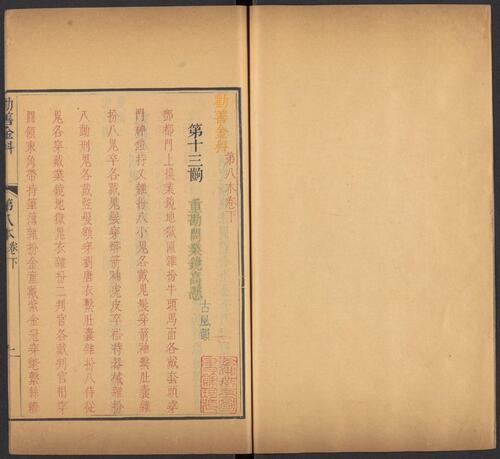 勸善金科
第八本卷下
第十三齣
重勘問業鏡高懸
古風韻
酆都門上提業鏡地獄區雜扮牛頭馬面各戴套頭穿
門神鎧持叉雜扮八小鬼各戴鬼髮穿箭袖繫肚囊雜
扮八鬼卒各戴鬼髮穿蟒箭袖虎皮卒褂持器械雜扮
八動刑鬼各戴豎髮額穿劉唐衣繫肚囊雜扮八侍從
鬼各穿戴業鏡地獄鬼衣雜扮二判官各戴判官帽穿
圓領束角帶持筆簿雜扮金童戴紫金冠穿氅繫絲縧
勸善金科
第八本卷下
一